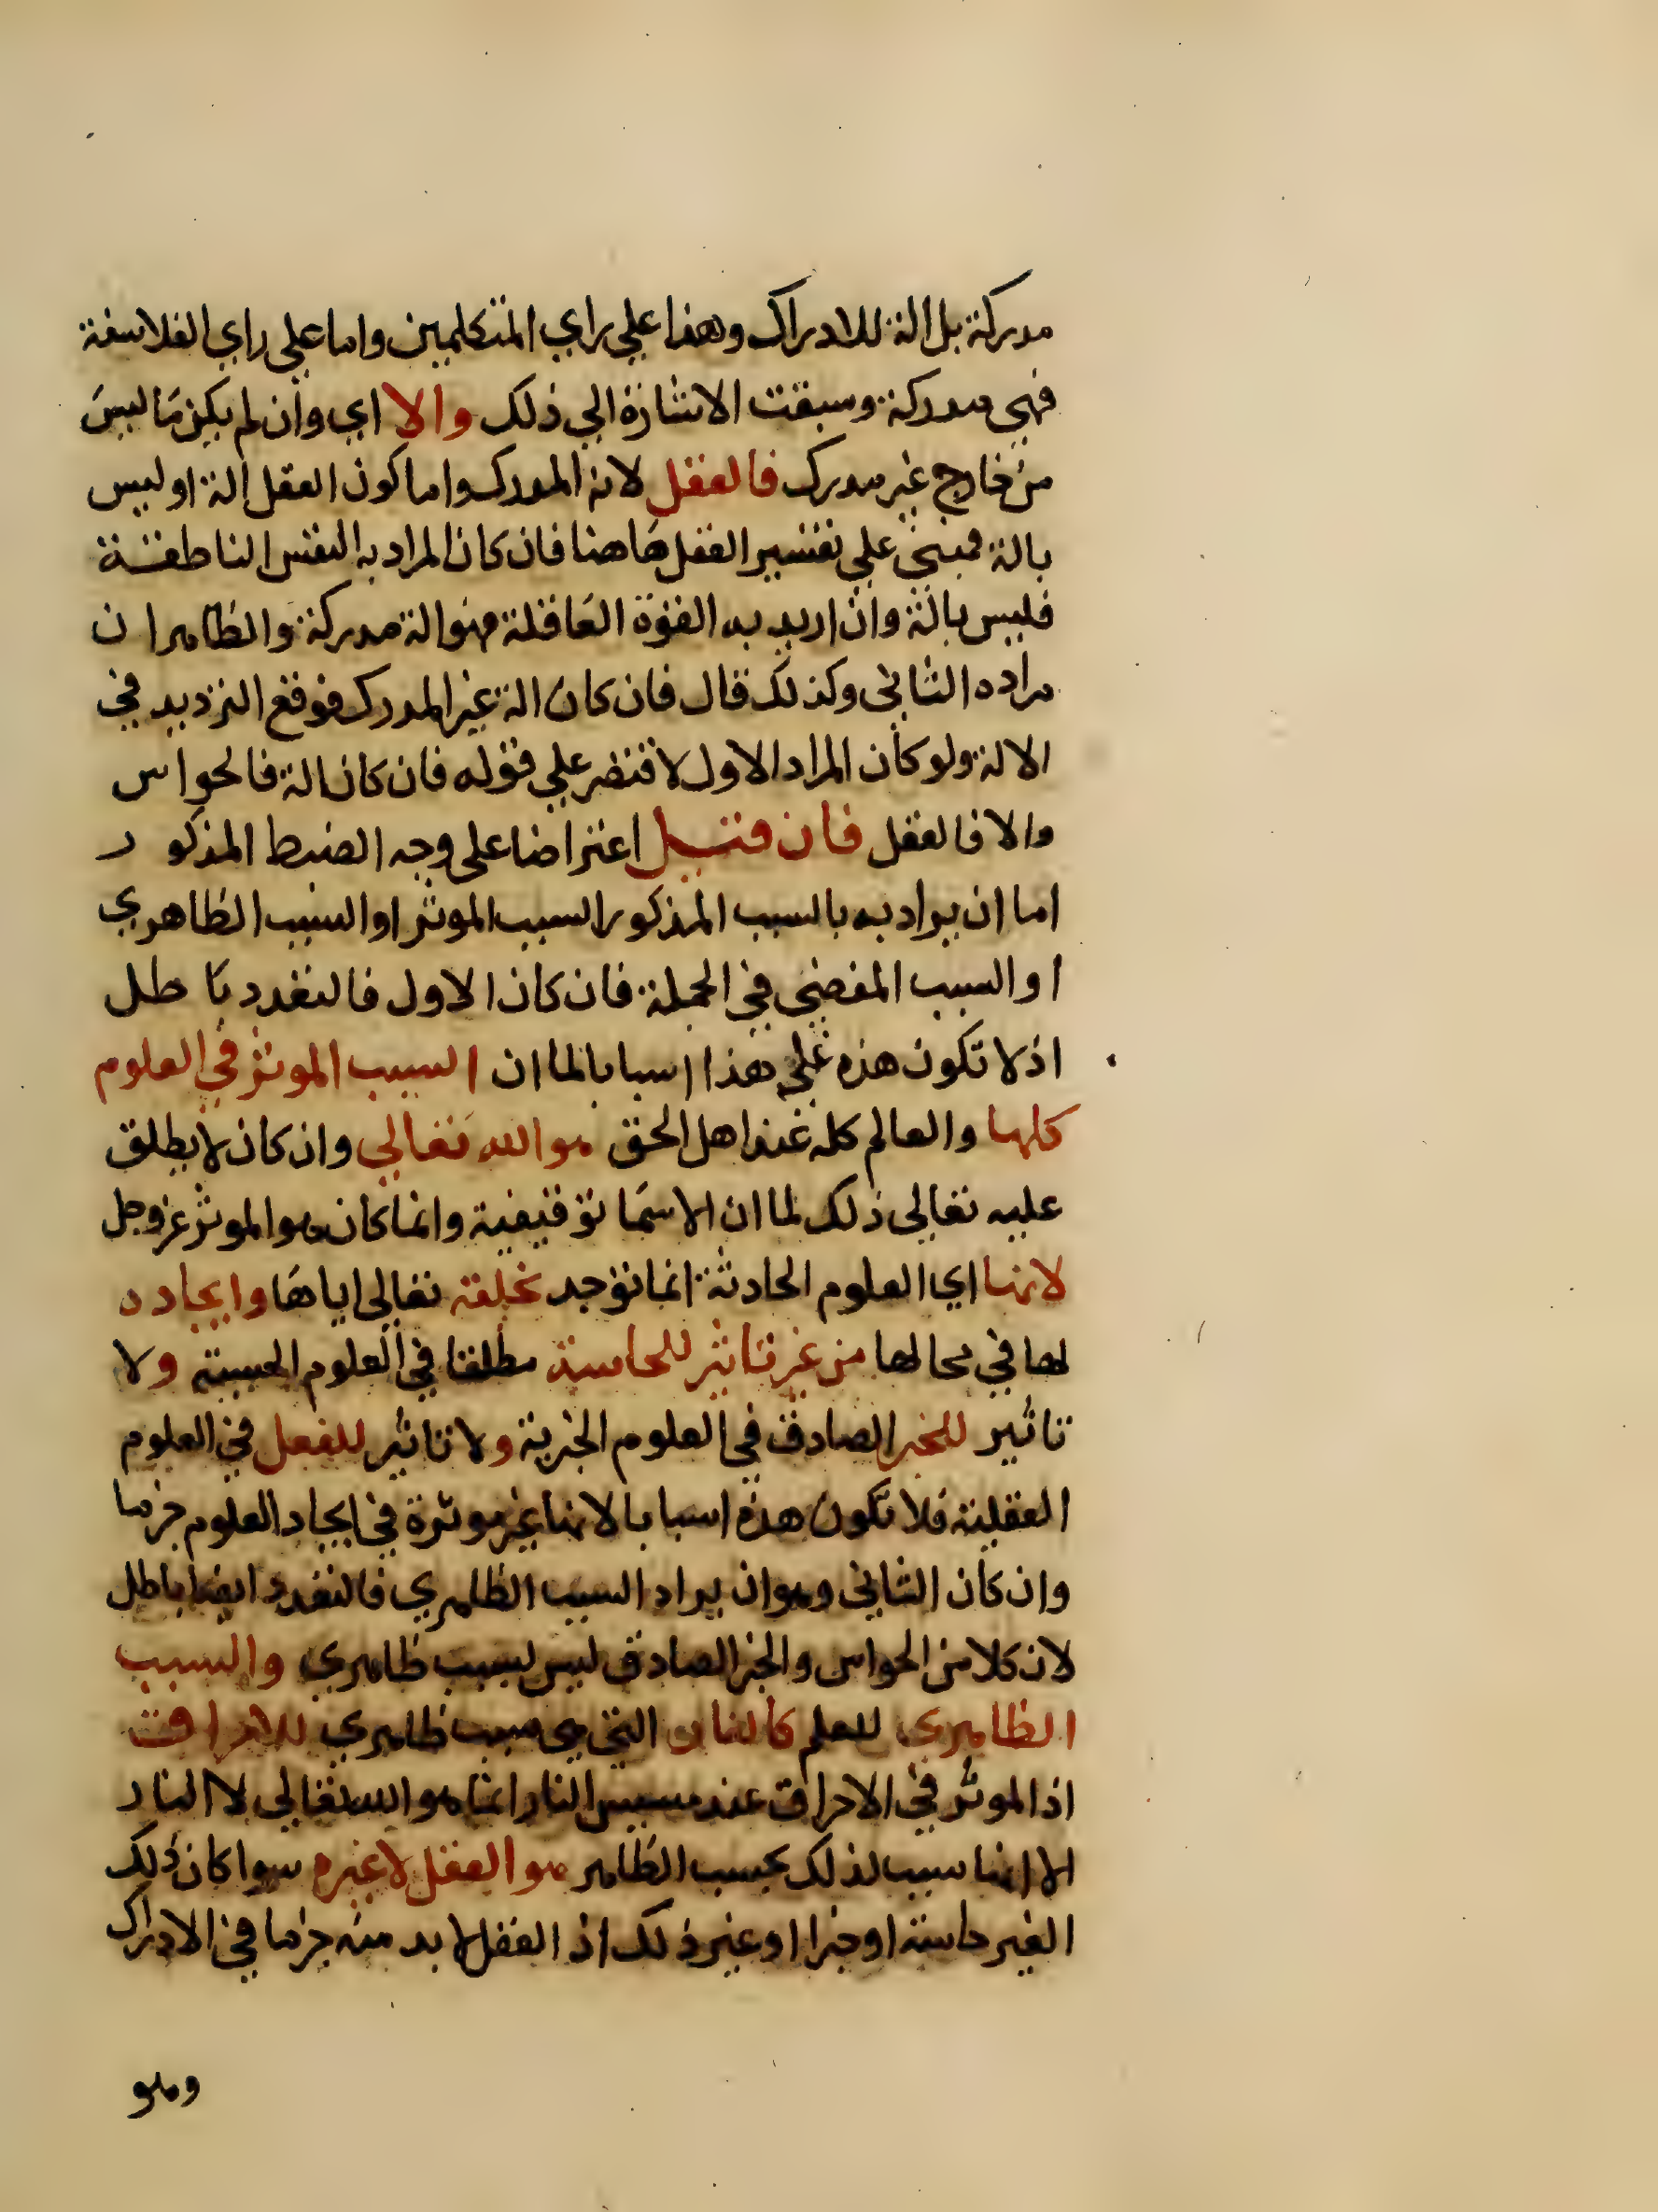 مدركة بل الة للادراك وهذا علي راي المتكلمين واما علي راي الفلاسفة
فهي مدركة وسبقت الاشارة الي ذلك والا اي وان لم يكن ما ليس
من خارج غير مدرك فالعقل لانه المدرك واما كون العقل الة او ليس
بالة فمبني علي تفسير العقل هاهنا فان كان المراد به النفس الناطقة
فليس بالة وان اريد به القوة العاقلة فهو الة مدركة والظاهر ان
مراده الثاني وكذلك قال فان كان الة غير المدرك فوقع الترديد في
الالة ولو كان المراد الاول لاقتصر علي قوله فان كان الة فالحواس
والا فالعقل فان قيل اعتراضا على وجه الضبط المذكور
اما ان يراد به بالسبب المذكور السبب الموثر او السبب الظاهري
او السبب المفضي في الجملة فان كان الاول فالتعدد باطل
اذ لا تكون هذه علي هذا اسبابا لما ان السبب الموثر في العلوم
كلها والعالم كله عند اهل الحق هو الله تعالي وان كان لا يطلق
عليه تعالى ذلك لما ان الاسما توقيفية وانما كان هو الموثر عز وجل
لانها اي العلوم الحادثة انما توجد بخلقه تعالى اياها وايجاده
لها في محالها من غير تاثير للحاسة مطلقا في العلوم الحسية ولا
تاثير للخبر الصادق في العلوم الخبرية ولا تاثير للعقل في العلوم
العقلية فلا تكون هذه اسبابا لانها غير موثرة في ايجاد العلوم جزما
وان كان الثاني وهو ان يراد السبب الظاهري فالتعدد ايضا باطل
لان كلا من الحواس والخبر الصادق ليس بسبب ظاهري والسبب
الظاهري للعلم كالنار التي هي سبب ظاهري للاحراق
اذ الموثر في الاحراق عند مسيس النار انما هو الله تعالي لا النار
الا انها سبب لذلك بحسب الظاهر هو العقل لا غيره سوا كان ذلك
الغير حاسة او خبرا او غير ذلك اذ العقل لا بد منه جزما في الادراك
وهو